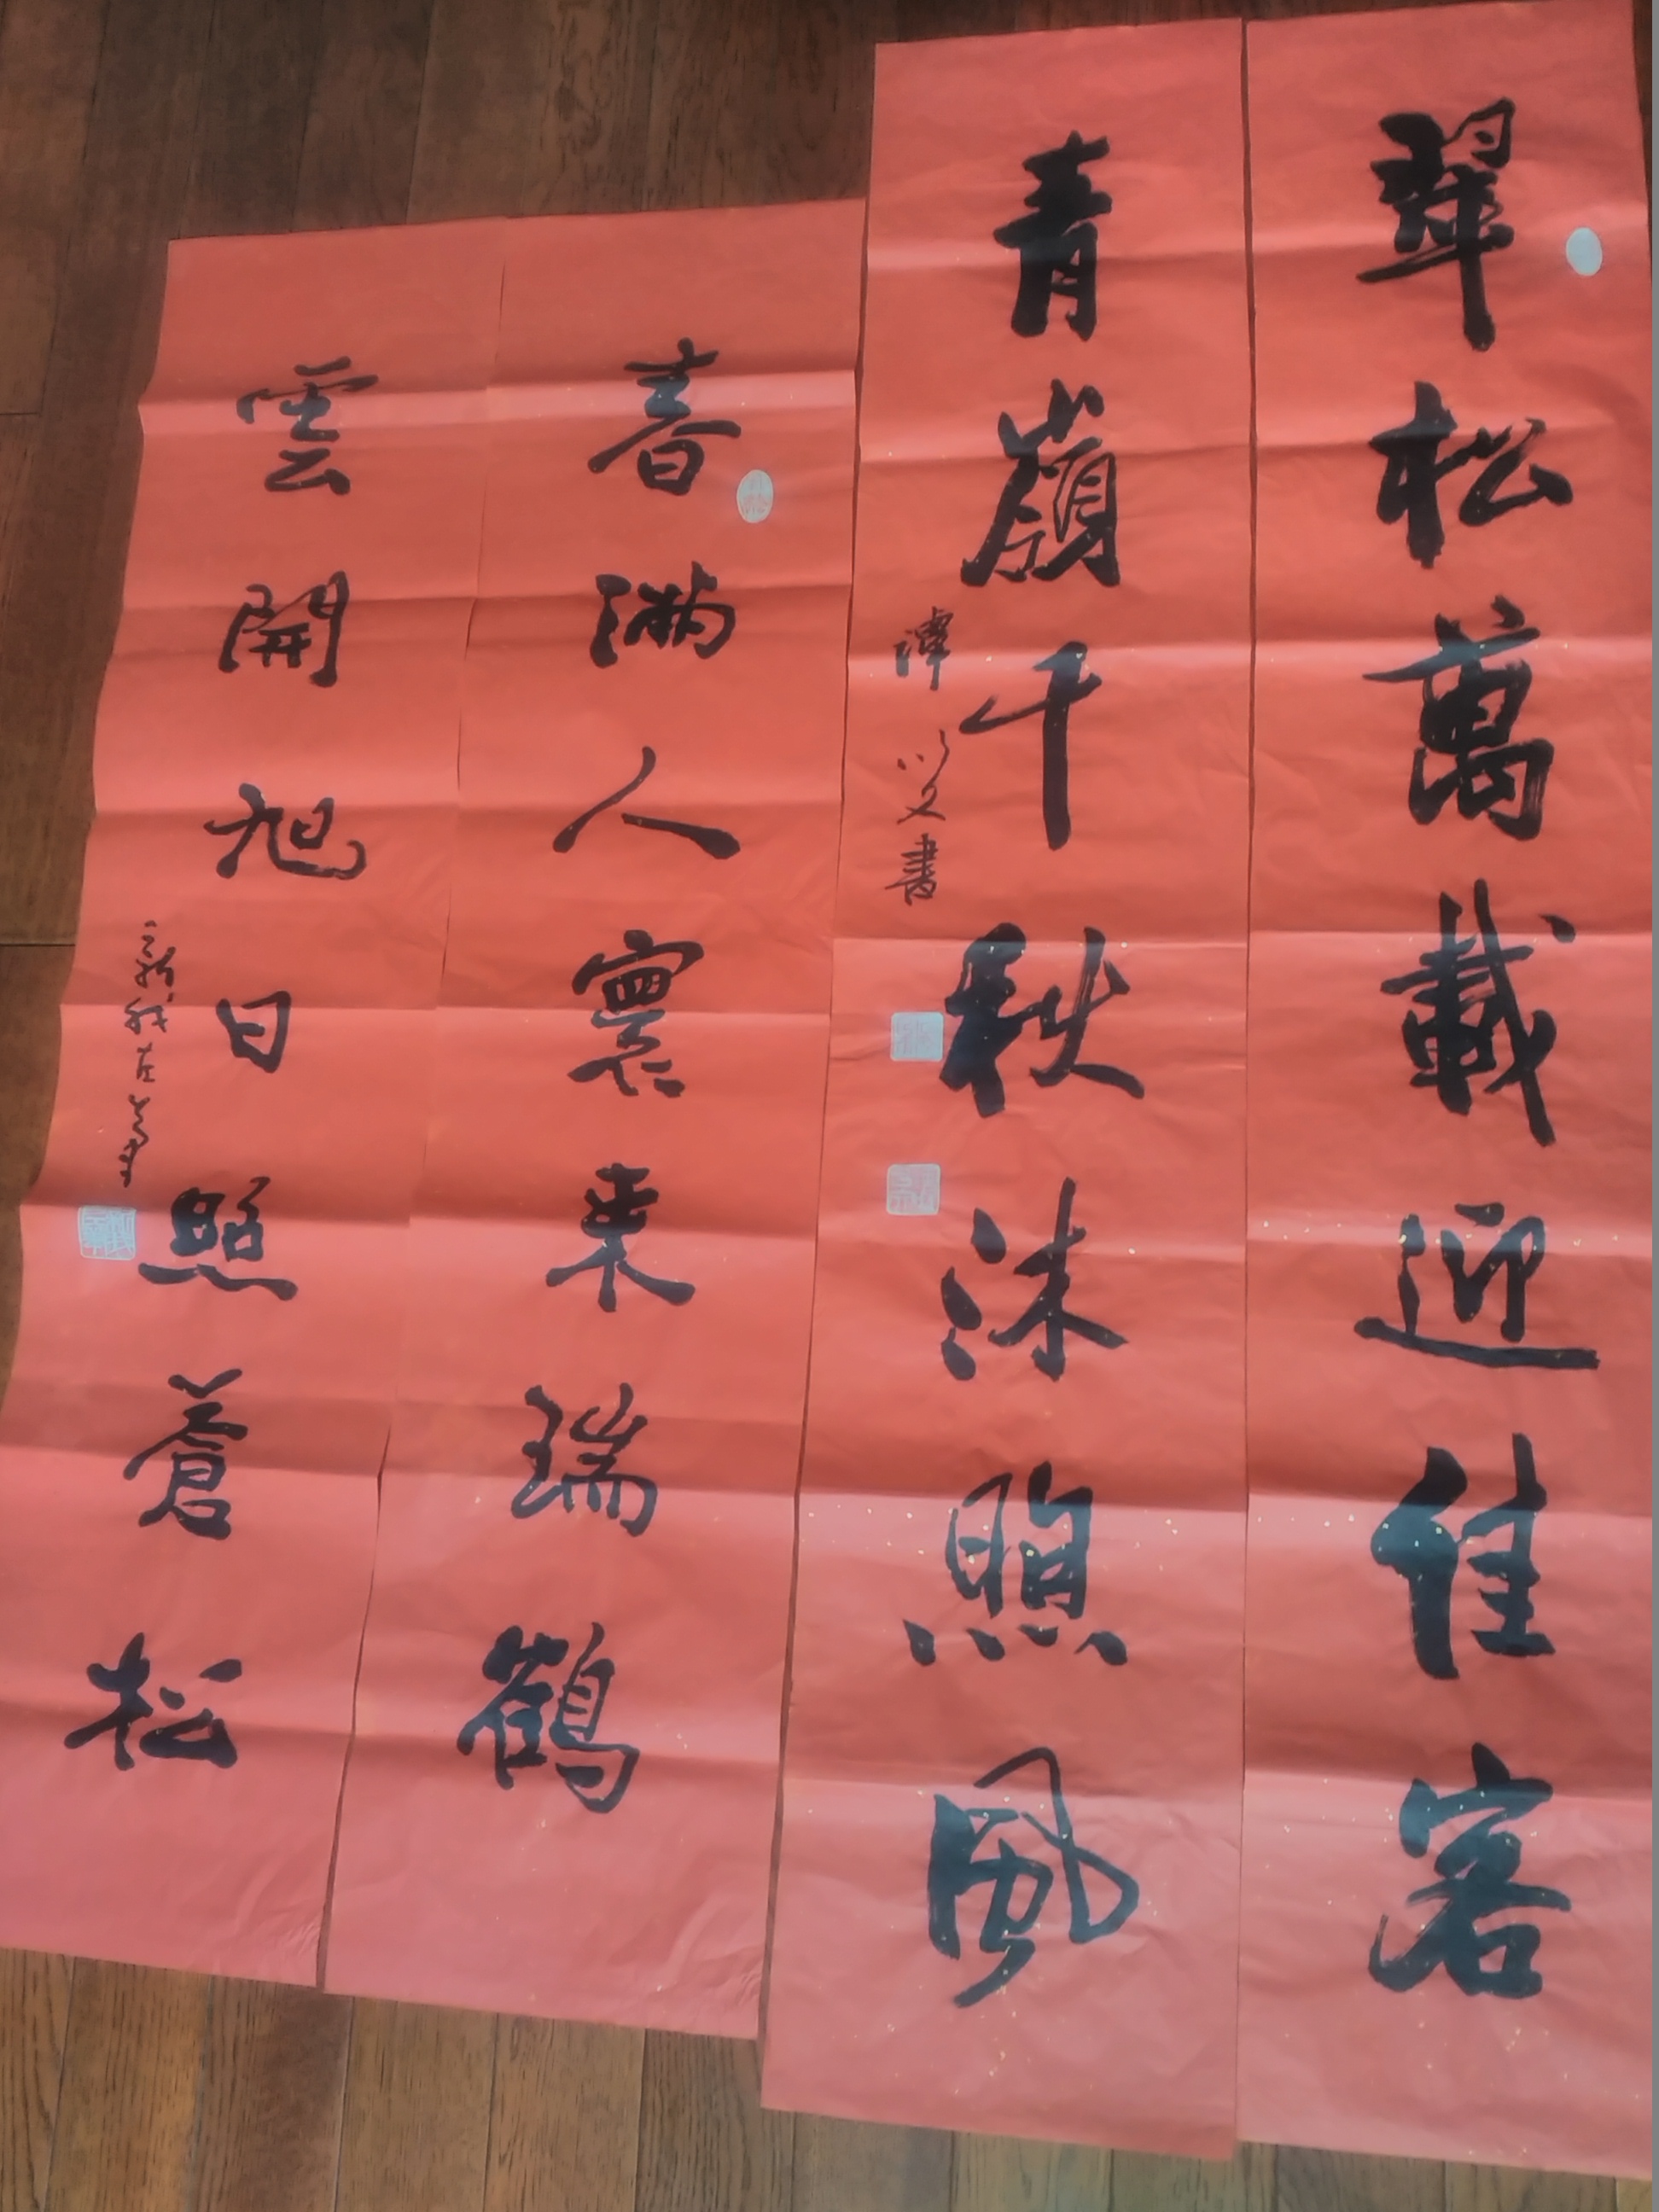 翠松萬載迎佳客
青嶺千秋沐煦風
春滿人寰来瑞鶴
雲開旭日照蒼松